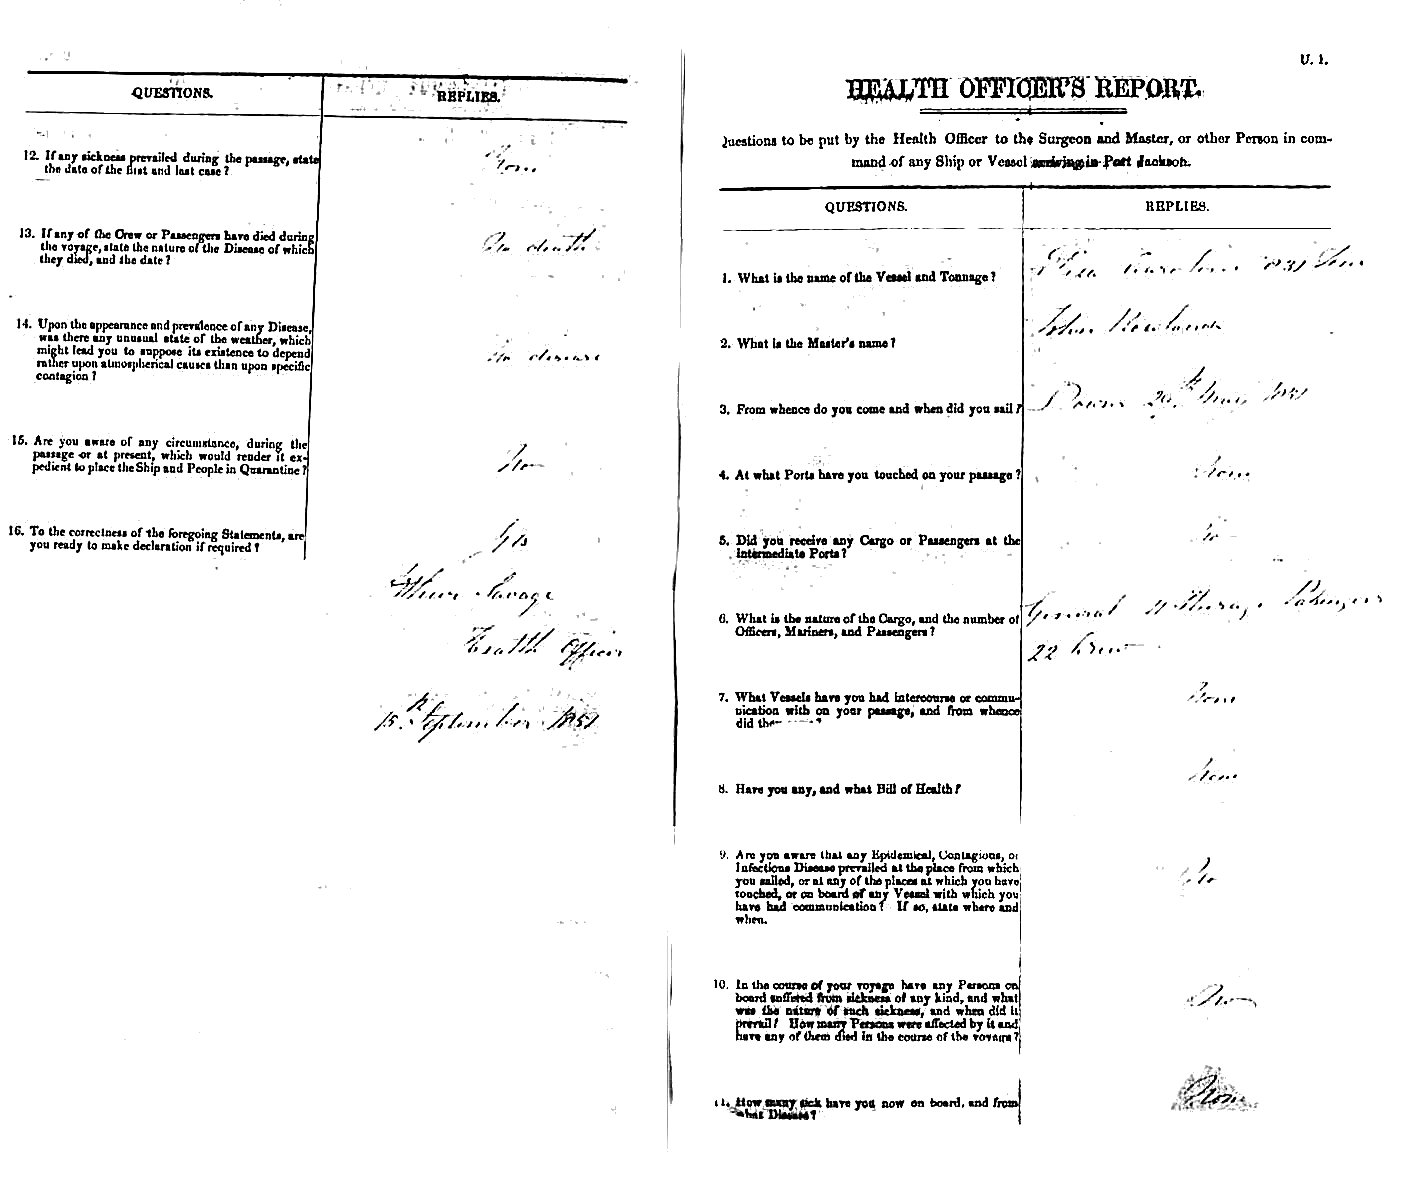 U. 1.
HEALTH OFFICER'S REPORT.
Questions to be put by the Health Officer to the Surgeon and Master, or other Person in com-
mand of any Ship or Vessel arriving in Port Jackson.
QUESTIONS. REPLIES.
1. What is the name of the Vessel and Tonnage? 831 Tons
2. What is the Master's name? John
3. From whence do you come and when did you sail? Downs 1851
4. At what Ports have you touched on your passage? None
5. Did you receive any Cargo or Passengers at the No
intermediate Ports?
6. What is the nature of the Cargo, and the number of General Steerage Passengers
Officers, Mariners, and Passengers? 22 Crew
7. What Vessels have you had intercourse or commu- None
nication with on your passage, and from whence
did
8. Have you any, and what Bill of Health? None
9. Are you aware that any Epidemical, Contagious, or
Infectious Disease prevailed at the place from which No
you sailed, or at any of the places at which you have
touched, or on board of any Vessel with which you
have had communication? If so, state where and
when.
10. In the course of your voyage have any Persons on No
board suffered from sickness of any kind, and what
was the nature of such sickness, and when did it
prevail? How many Persons were affected by it and
have any of them died in the course of the voyage?
11. How many sick have you now on board, and from None
what Disease?
QUESTIONS. REPLIES.
12. If any sickness prevailed during the passage, state None
the date of the first and last case?
13. If any of the Crew or Passengers have died during No death
the voyage, state the nature of the Disease of which
they died, and the date?
14. Upon the appearance and prevalence of any Disease,
was there any unusual state of the weather, which
might lead you to suppose its existence to depend No disease
rather upon atmospherical causes than upon specific
contagion?
15. Are you aware of any circumstance, during the
passage or at present, which would render it ex- No
pedient to place the Ship and People in Quarantine?
16. To the correctness of the foregoing Statements, are Yes
you ready to make declaration if required?
Savage
Health Officer
15th September 1851